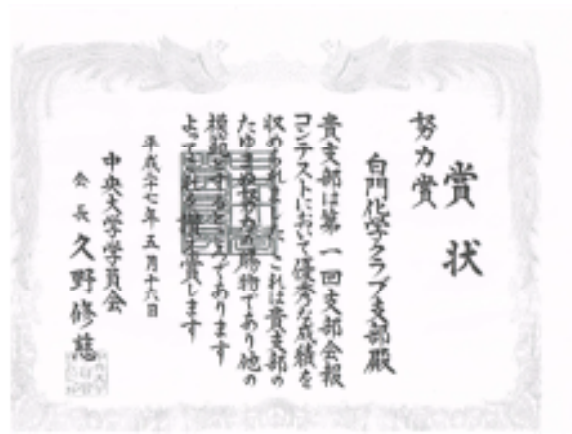 賞状
努力賞
白門化学クラブ支部殿
貴支部は第一回支部会報
コンテストにおいて優秀な成績を
収められました これは貴支部の
たゆまぬ努力の賜物であり他の
模範とするところであります
よってこれを賞します
平成二十七年五月十六日
中央大学学員会
会長 久野修慈